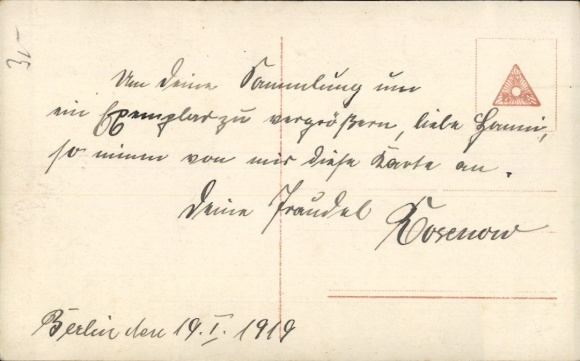 31-
Um Deine Sammlung um
ein Exemplar zu vergrößern, liebe Hanni,
so nimm von mir diese Karte an.
Deine Traudel Rosenow
Berlin den 19.I.1919